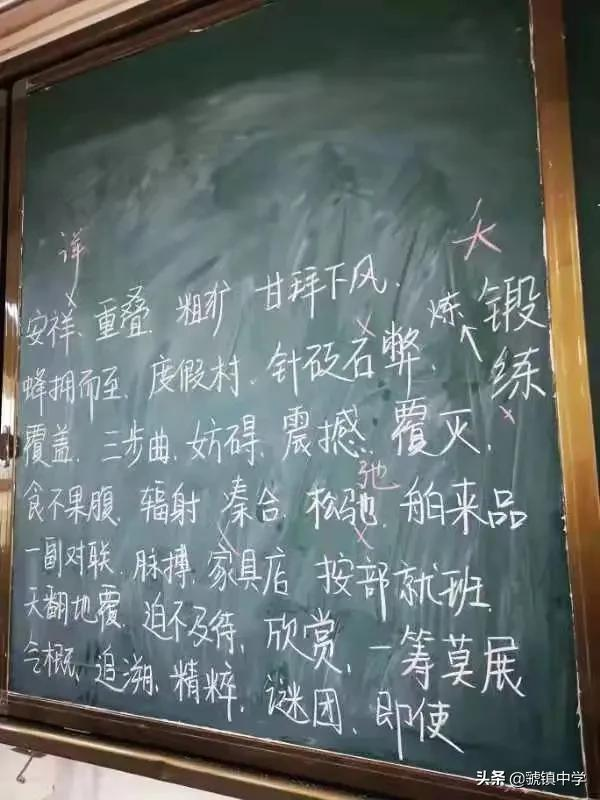 详
安祥、重叠、粗犷 甘拜下风、炼 锻
蜂拥而至、度假村、针砭石弊、练
覆盖、三步曲、妨碍、震撼、覆灭、
弛
食不果腹、辐射 秦合、松驰、舶来品
一副对联、脉搏、家具店 按部就班、
天翻地覆、迫不及待、欣赏、一筹莫展
气概、追溯、精粹、谜团、即使
头条@虢镇中学